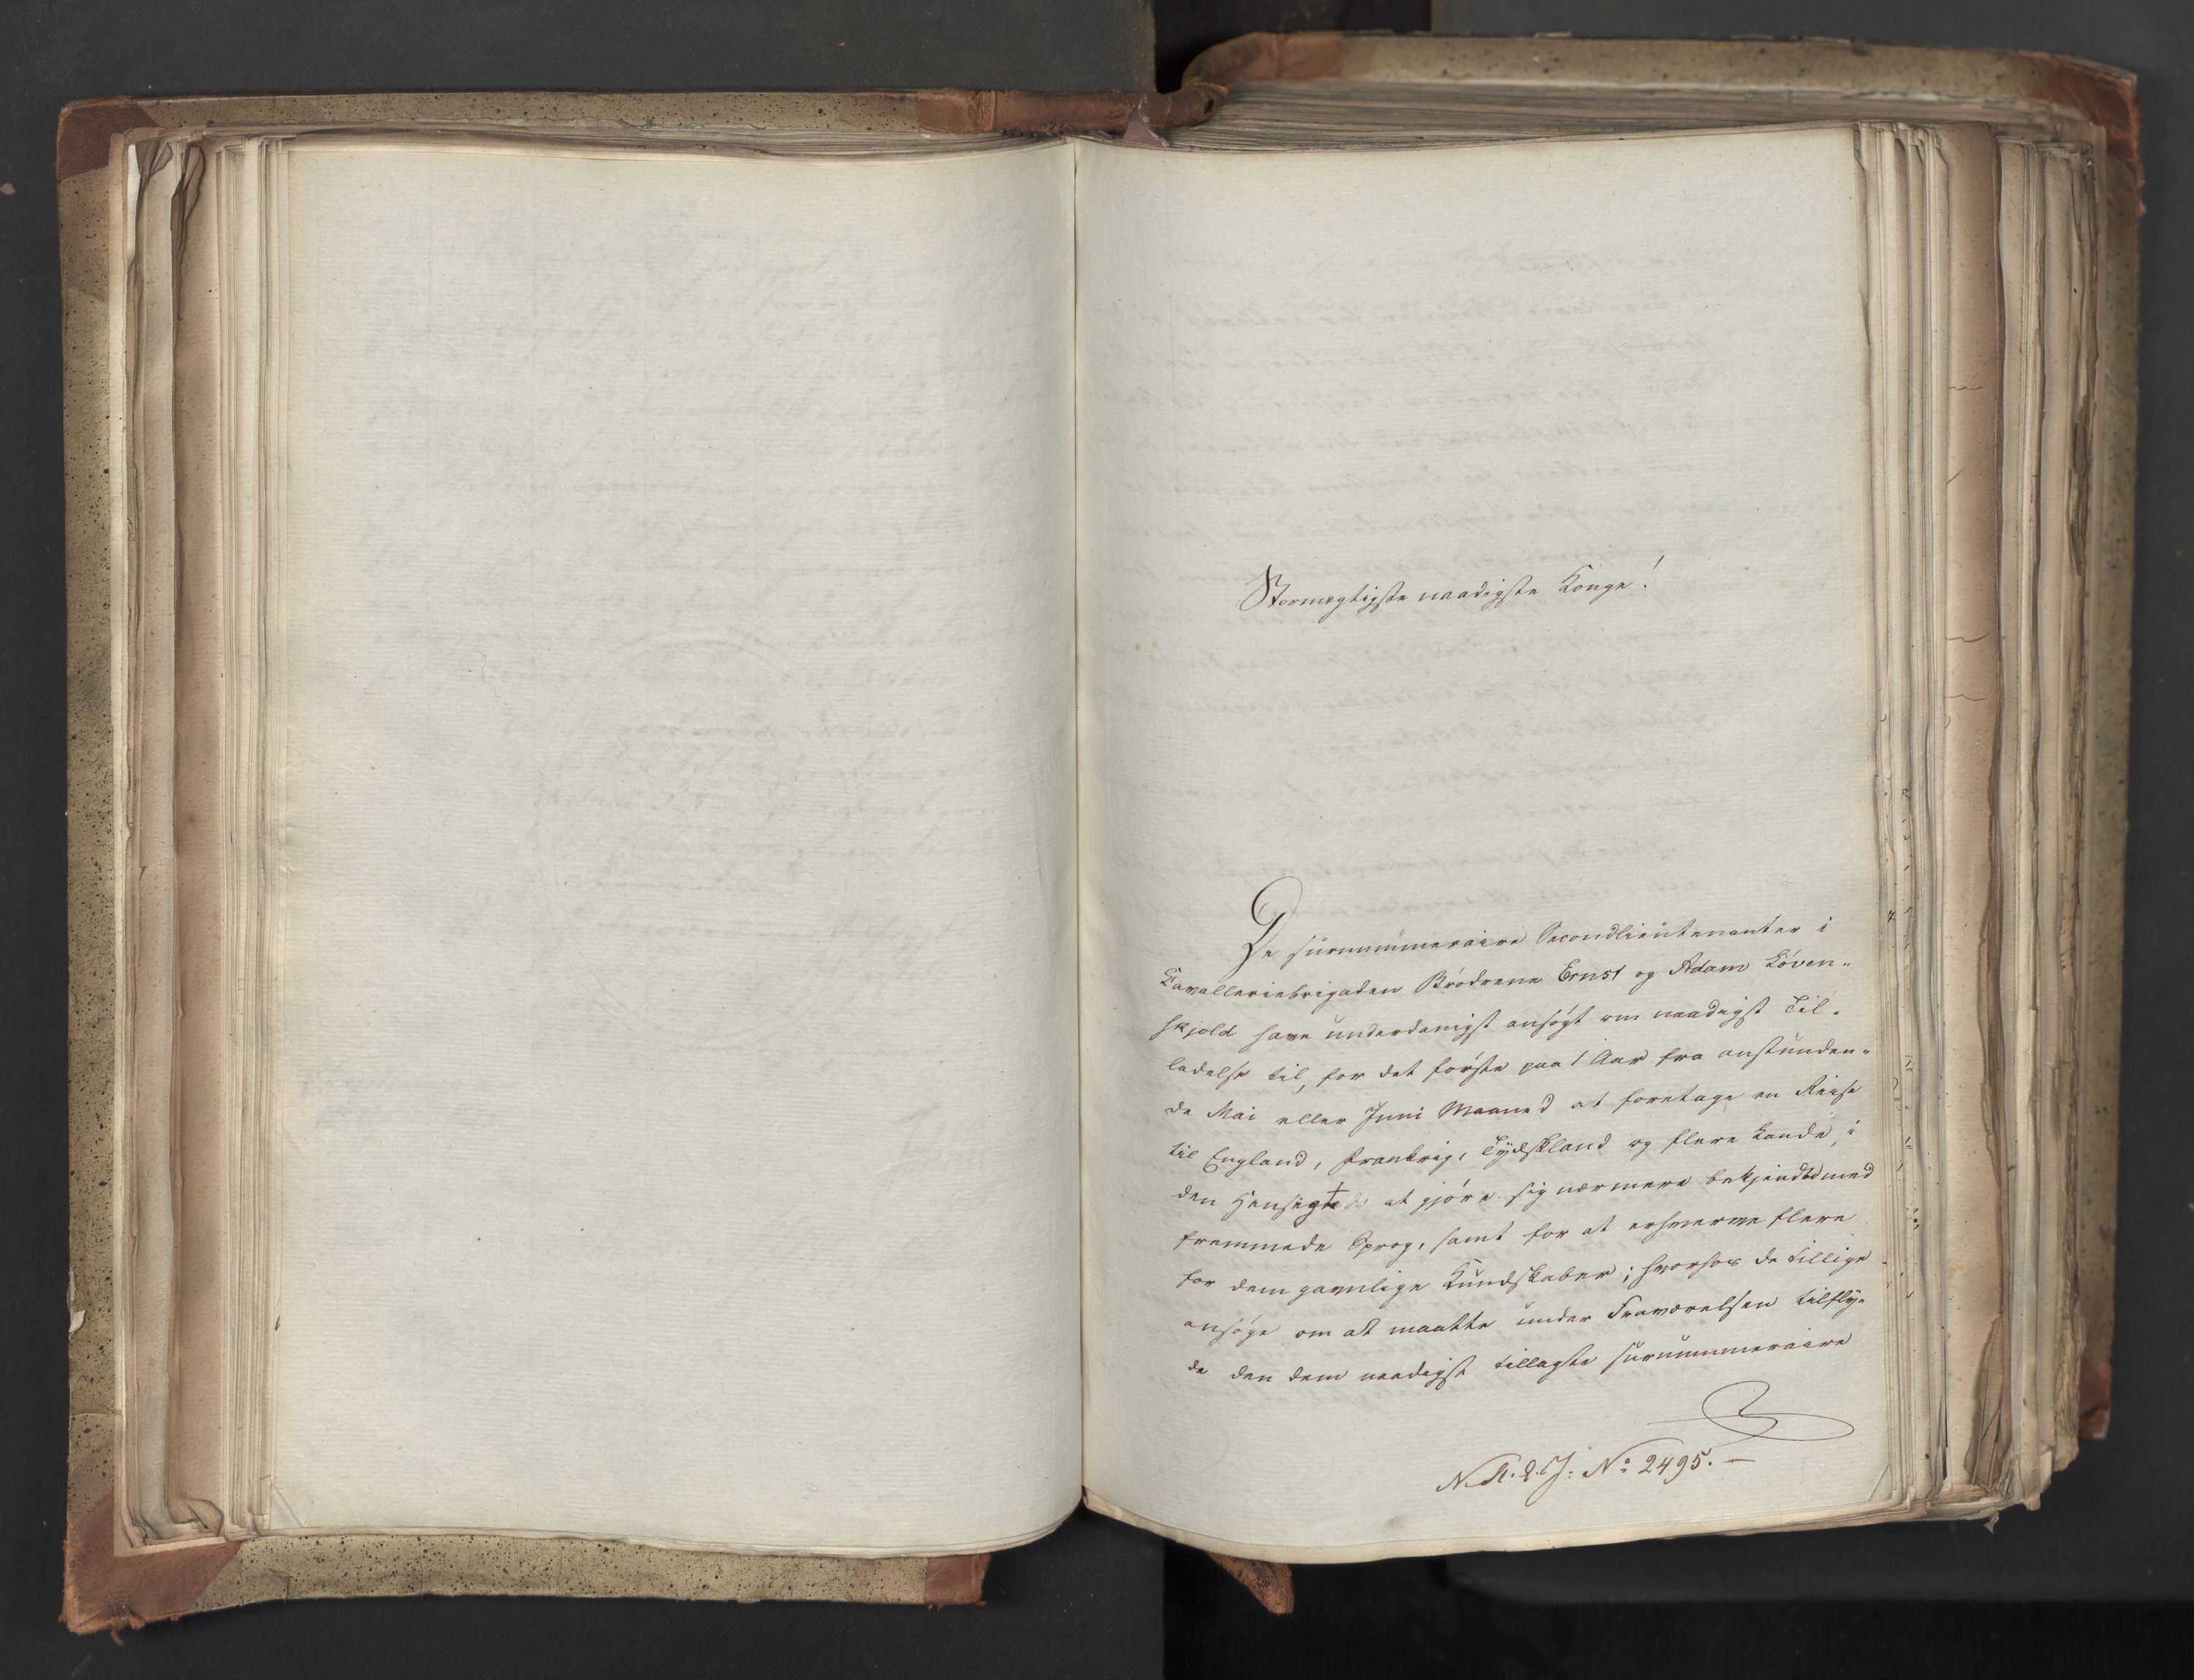 Stormægtigste naadigste Konge!
De surnummeraire Secondlieutenanter i
Kavalleriebrigaden Brødrene Ernst og Adam Løven-
skjold have underdanigst ansøgt om naadigst Til-
ladelse til, for det første paa 1 Aar fra anstunden-
de Mai eller Juni Maaned at foretage en Reise
til England, Frankrig, Tydskland og flere Lande, i
den Hensigt at gjøre sig nærmere bekjendt med
fremmede Sprog, samt for at erhverve flere
for dem gavnlige Kundskaber; hvorhos de tillige
ansøge om at maatte under Fraværelsen tilfly-
de den dem naadigst tillagte surnummeraire
N. R. 2. J: No 2495. —